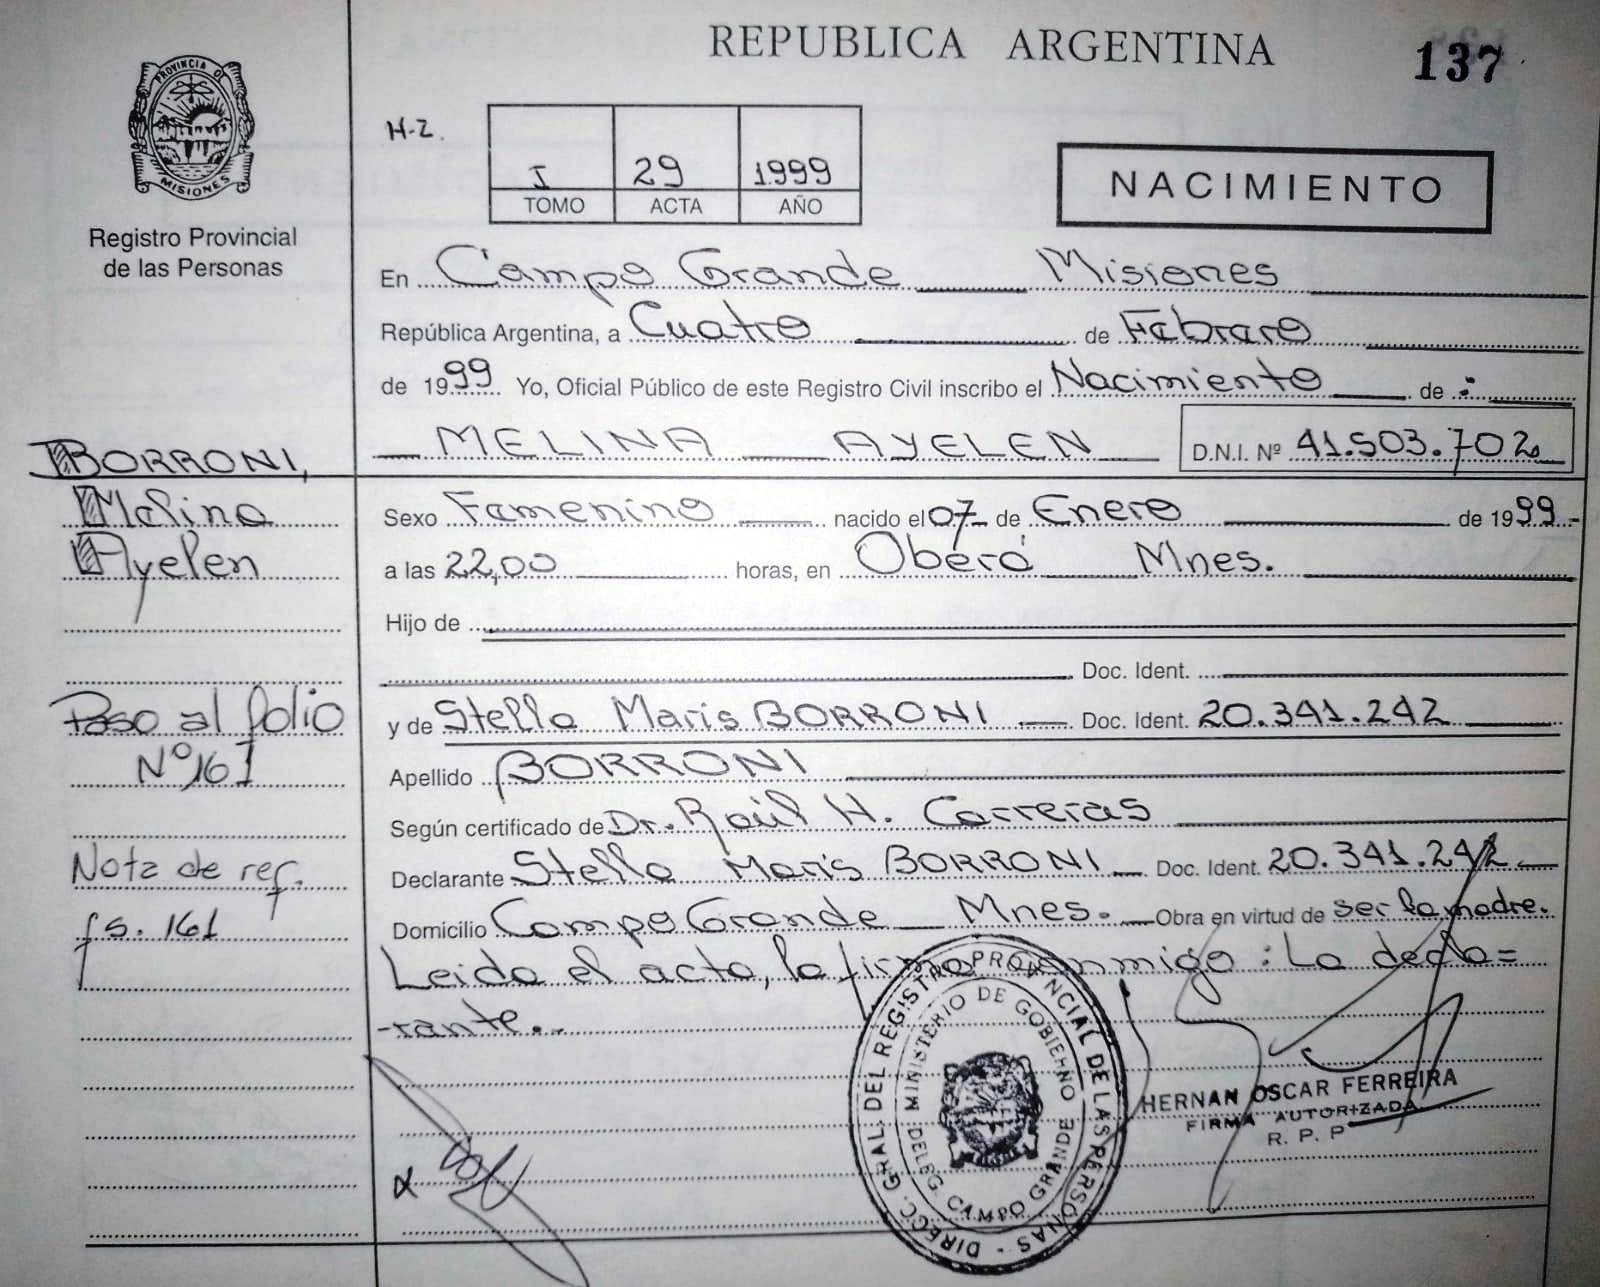 REPUBLICA ARGENTINA
137
PROVINCIA DE
MISIONES
Registro Provincial
de las Personas
H-2.
I 29 1999
TOMO ACTA AÑO
NACIMIENTO
En Campo Grande Misiones
República Argentina, a Cuatro de Febrero
de 1999 Yo, Oficial Público de este Registro Civil inscribo el Nacimiento de :
MELINA AYELEN D.N.I. Nº 41.503.702
BORRONI,
Melina
Ayelen
Sexo Femenino nacido el 07 de Enero de 1999-
a las 22,00 horas, en Oberá Mnes.
Hijo de
Doc. Ident.
Paso al folio
Nº 161
y de Stella Maris BORRONI Doc. Ident. 20.341.242
Apellido BORRONI
Según certificado de Dr. Raúl H. Carreras
Nota de ref.
fs. 161
Declarante Stella Maris BORRONI Doc. Ident. 20.341.242
Domicilio Campo Grande Mnes. Obra en virtud de ser la madre.
Leida el acta, la firma conmigo : La decla=
-rante.
DIRECC. GRAL. DEL REGISTRO PROVINCIAL DE LAS PERSONAS -
MINISTERIO DE GOBIERNO
DELEG. CAMPO GRANDE
HERNAN OSCAR FERREIRA
FIRMA AUTORIZADA
R. P. P